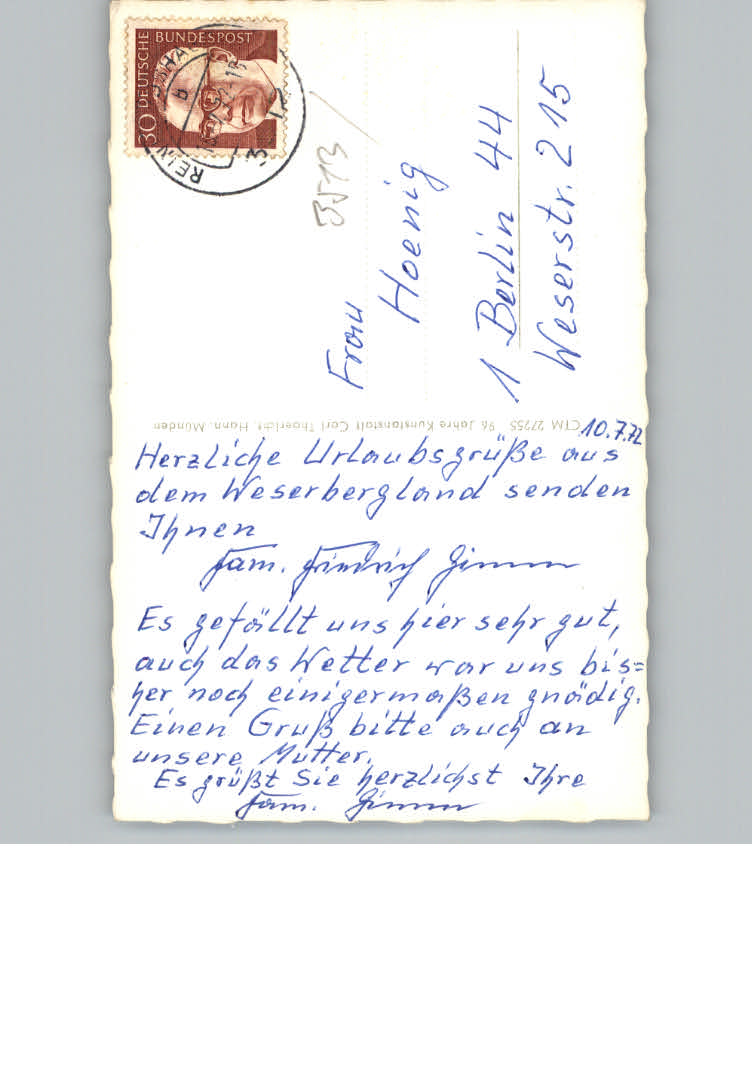 30 DEUTSCHE BUNDESPOST
3513
Frau
Hoenig
1 Berlin 44
Weserstr. 215
CTM 27255 96 Jahre Kunstanstalt Carl Thoericht, Hann. Münden
10.7.72
Herzliche Urlaubsgrüße aus
dem Weserbergland senden
Ihnen
Fam. Friedrich
Es gefällt uns hier sehr gut,
auch das Wetter war uns bis=
her noch einigermaßen gnädig.
Einen Gruß bitte auch an
unsere Mutter.
Es grüßt Sie herzlichst Ihre
Fam.